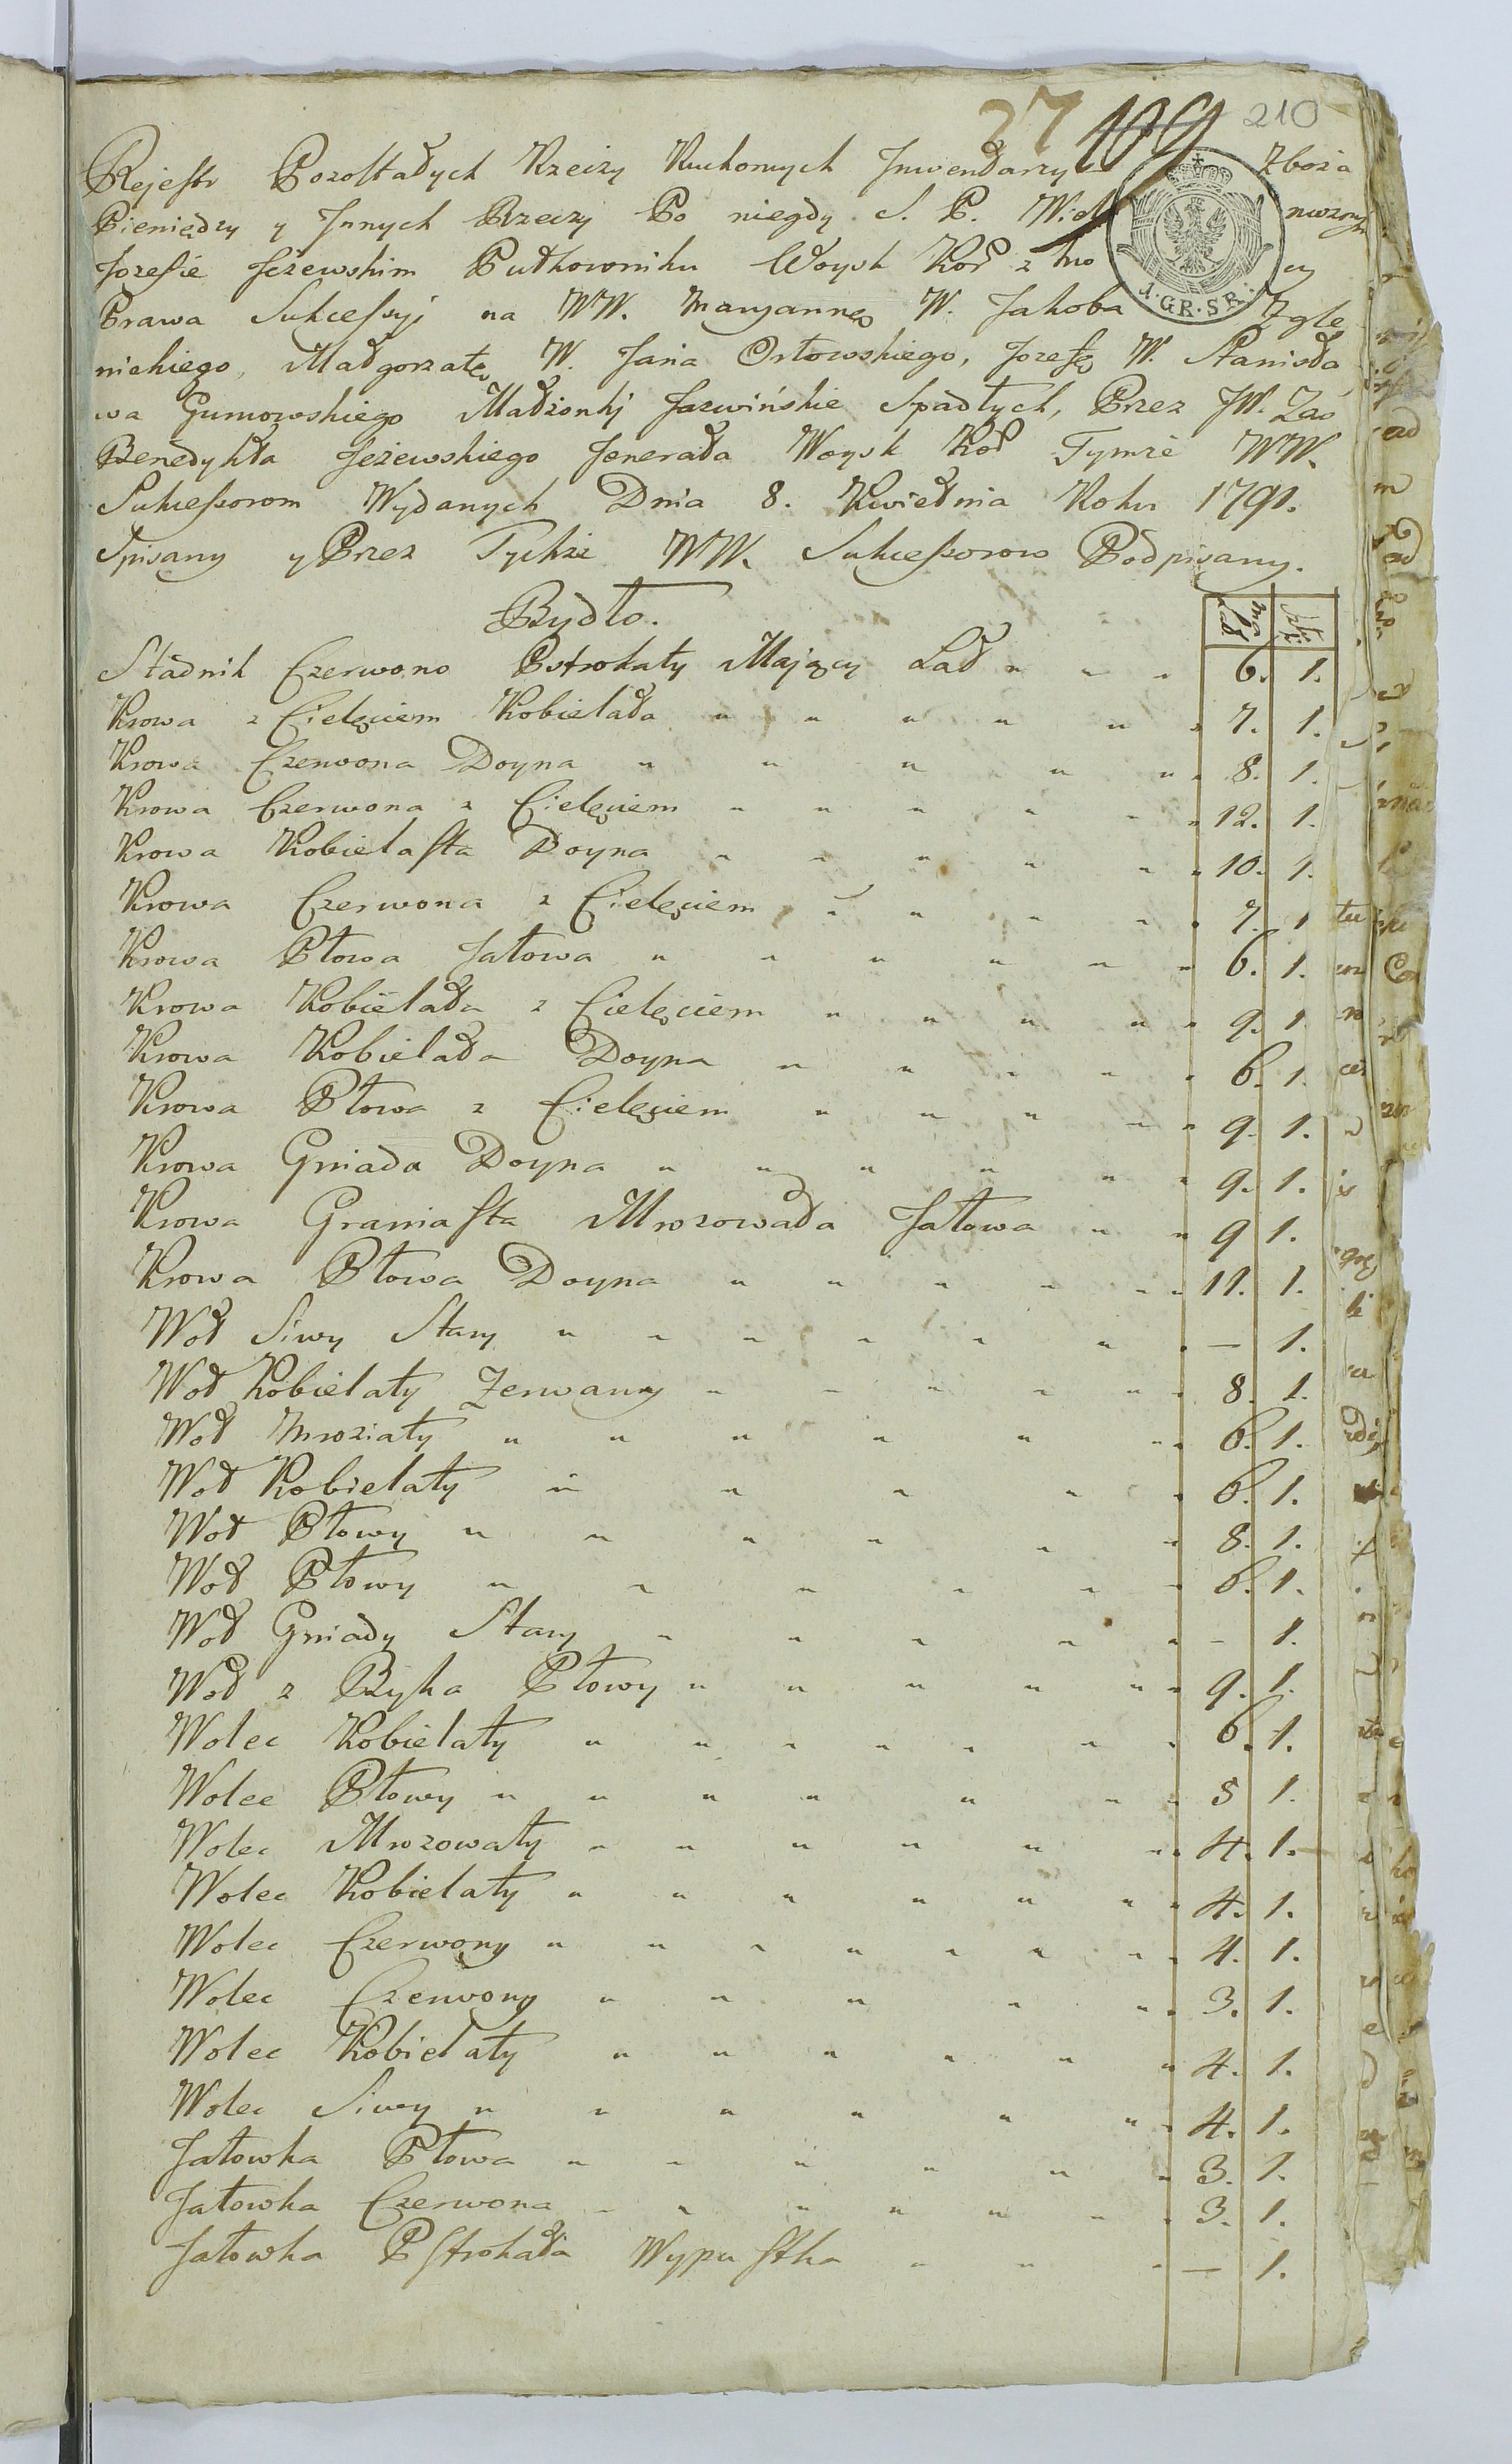 37 109 210
Rejestr Pozostałych Rzeczy Ruchomych Inwentarzy Zboża
Pieniędzy y Innych Rzeczy Po niegdy S. P. Wiel
Jozefie Jeżewskim Pułkowniku Woysk Kor z
Prawa Sukcessyi na WW. Maryannę W. Jakoba Zgle
nickiego, Małgorzatę W. Jana Orłowskiego, Jozefę W. Stanisła
wa Gumowskiego Małżonki Jazwińskie Spadłych, Przez JW.
Benedykta Jeżewskiego Jenerała Woysk Kor Tymże WW.
Sukcessorom Wydanych Dnia 8. Kwietnia Roku 1791.
Spisany y Przez Tychże WW. Sukcessorow Podpisany.
Bydło.
ma lat szt.
Stadnik Czerwono Pstrokaty Maiący Lat 6. 1.
Krowa z Cielęciem Kobielata 7. 1.
Krowa Czerwona Doyna 8. 1.
Krowa Czerwona z Cielęciem 12. 1.
Krowa Kobielasta Doyna 10. 1.
Krowa Czerwona z Cielęciem 7. 1
Krowa Płowa Jałowa 6. 1.
Krowa Kobielata z Cielęciem 9. 1
Krowa Kobielata Doyna 6. 1.
Krowa Płowa z Cielęciem 9. 1.
Krowa Gniada Doyna 9. 1.
Krowa Graniasta Mrozowata Jałowa 9 1.
Krowa Płowa Doyna 11. 1.
Woł Siwy Stary — 1.
Woł Kobielaty Zerwany 8. 1.
Woł Mroziaty 6. 1.
Woł Kobielaty 6. 1.
Woł Płowy 8. 1.
Woł Płowy 6. 1.
Woł Gniady Stary – 1.
Woł z Byka Płowy 9. 1.
Wolec Kobielaty 6. 1.
Wolec Płowy 5 1.
Wolec Mrozowaty 4. 1.
Wolec Kobielaty 4. 1.
Wolec Czerwony 4. 1.
Wolec Czerwony 3. 1.
Wolec Kobielaty 4. 1.
Wolec Siwy 4. 1.
Jałowka Płowa 3. 1.
Jałowka Czerwona 3. 1.
Jałowka Pstrokata Wypustka — 1.